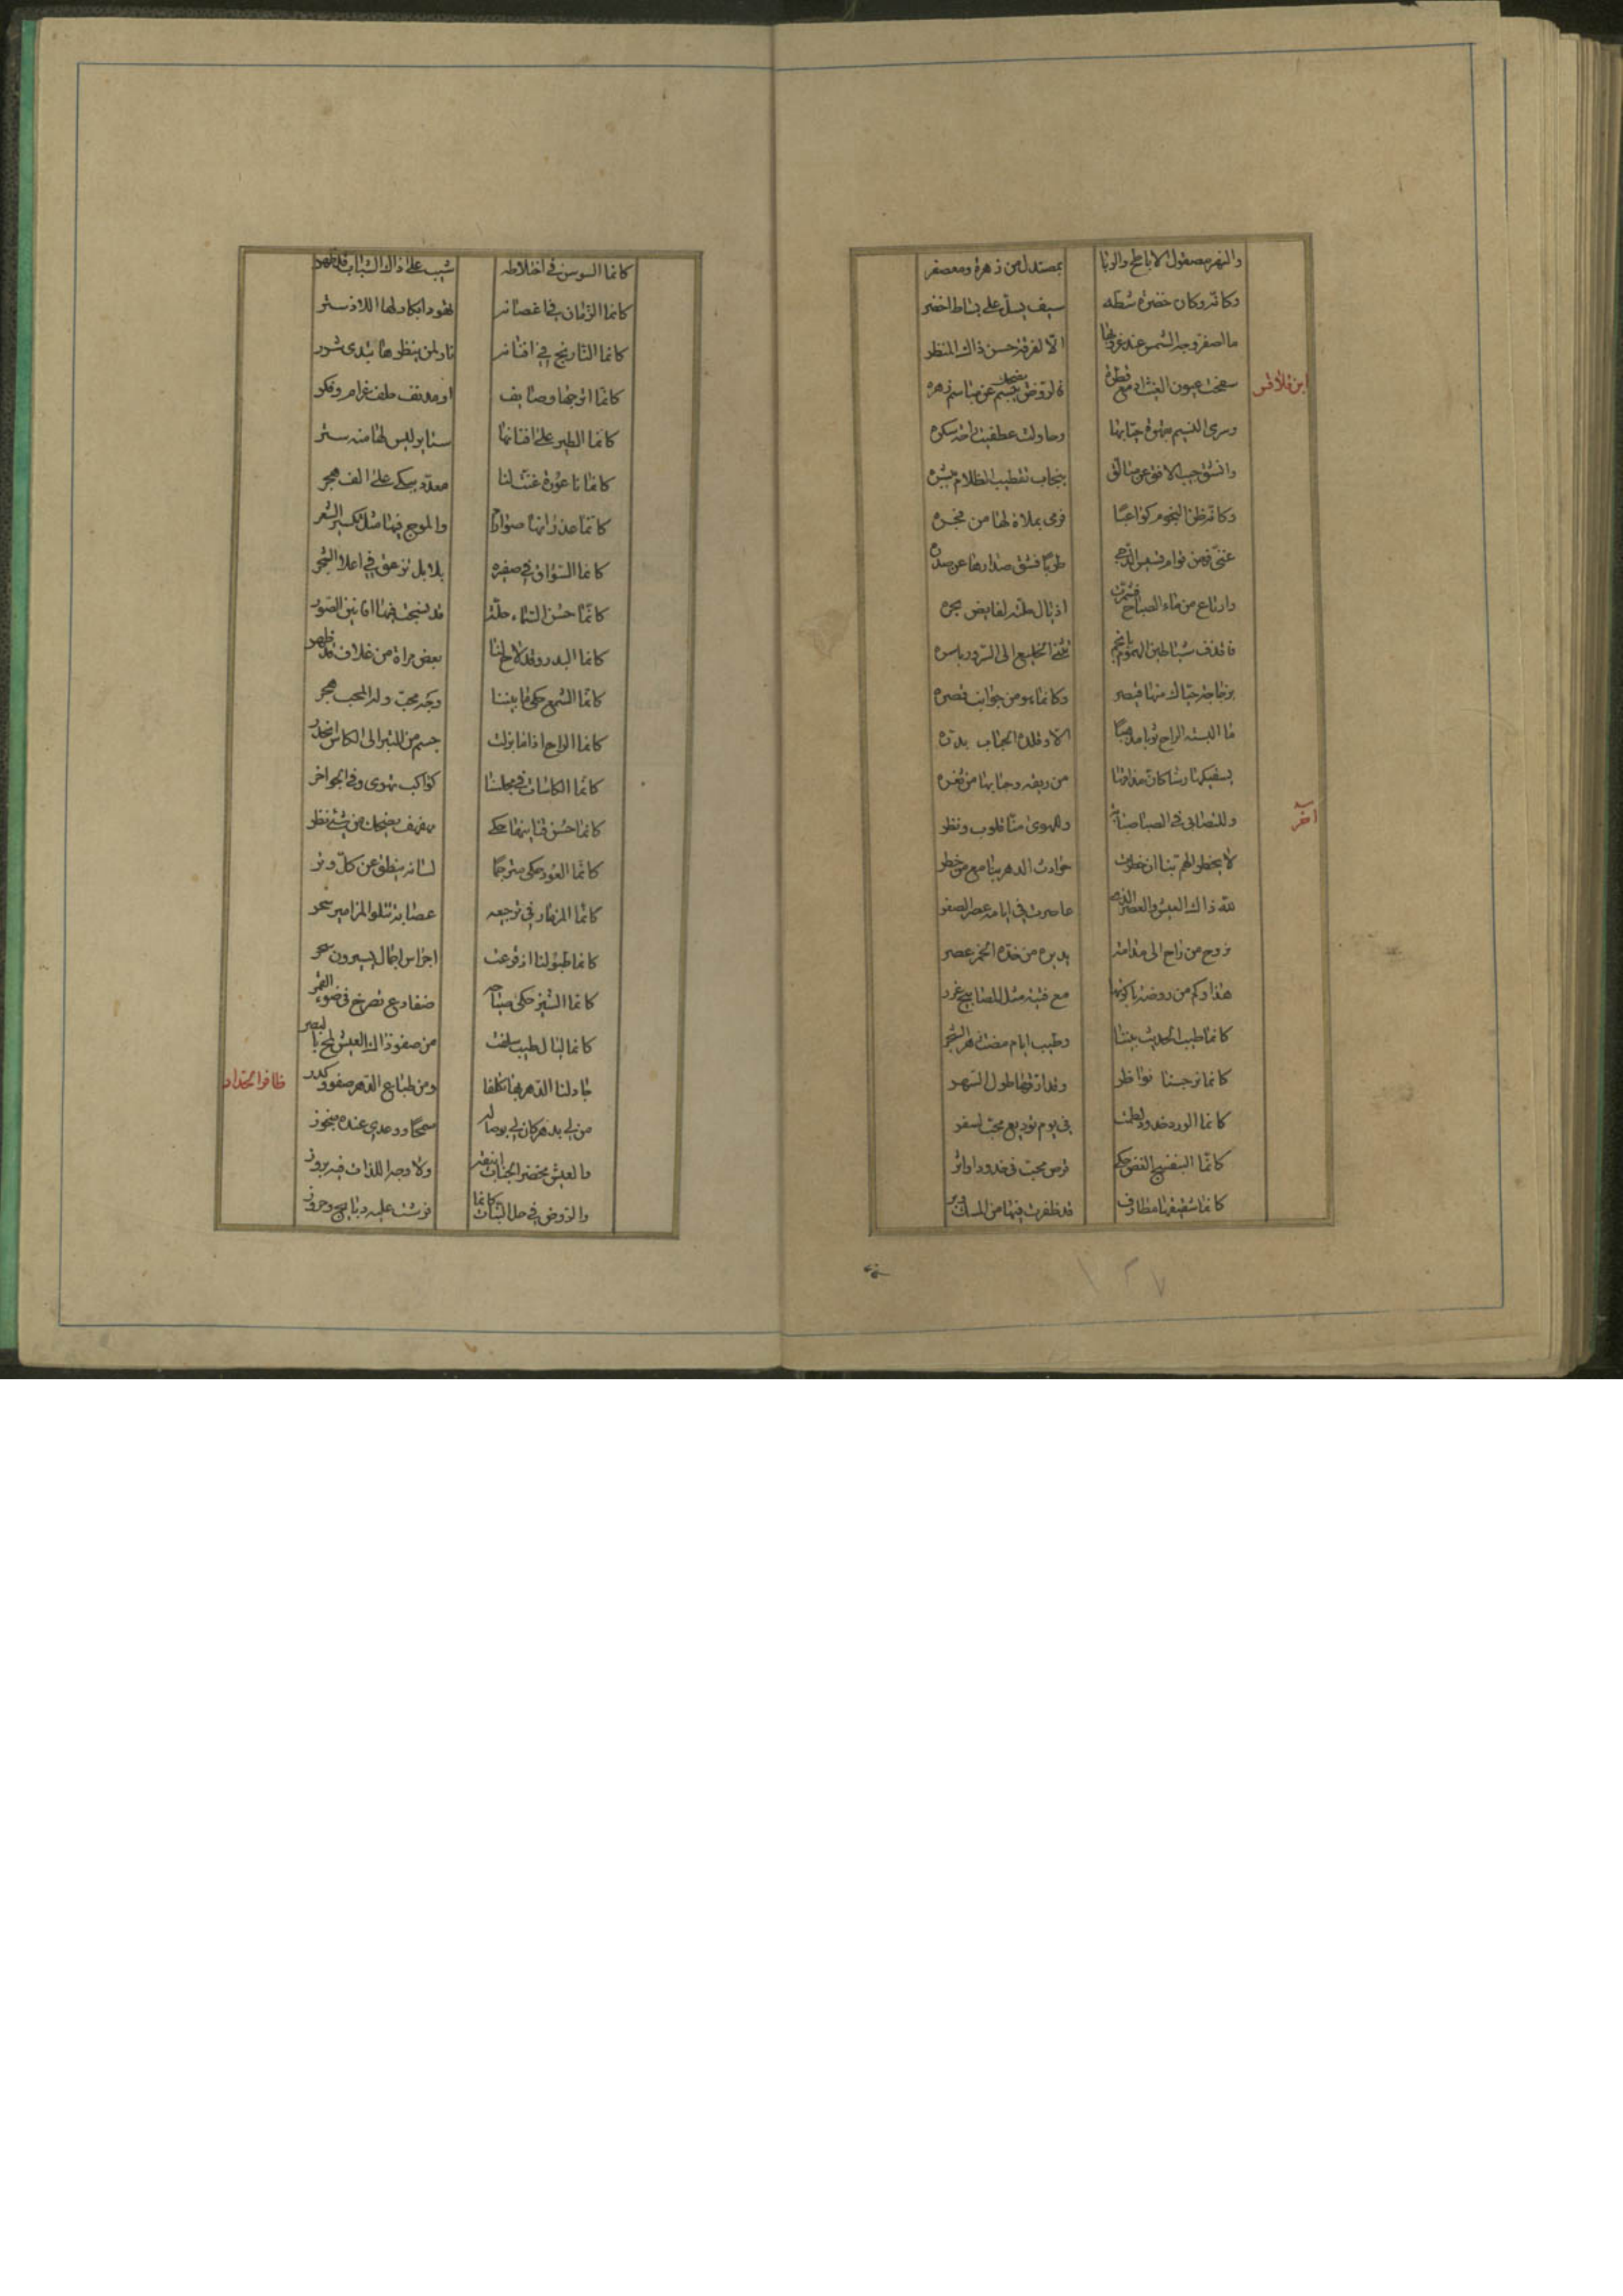 والنهر مصقول الاباطح والربا بمصندل من زهره ومعصفر
وكانه وكان خضرة شطه سيف يسل على بساط اخضر
ما اصفر وجه الشمس عند غروبها الا لفرقة حسن ذاك المنظر
ابن قلاقس
سفحت عيون الغيث ادمع قطره فالروض يضحك عن مباسم زهره
وسرى النسيم
وانشق جيب الافق عن متالق ينجاب تقطيب الظلام
وكانه ظن النجوم كواعبا فرمى بملاة لها من فجره
وارتاع من ماء الصباح فشمرت اذيال
فاقذف شياطين الهموم بانجم
ما البسته الراح ثوبا مذهبا الا وقلده الحباب بدره
يسقيكها رشا كان مذاقها من ريقه وحبابها من ثغره
آخر
وللتصابي في الصبا وللهوى منا قلوب ونظر
لا يخطر الهم بنا ان خطرت حوادث الدهر بنا مع من خطر
لله ذاك العيش والعصر الذي ما صرت في ايامه عصر الصغر
نروح من راح الى مدامة يديره من خده الخمر عصر
هذا وكم من روضة باكرتها مع فتية مثل المصابيح غرر
كانما طيب الحديث بيننا وطيب ايام مضت زهر الشجر
كانما نرجسنا نواظر وقد ارقها طول السهر
كانما الورد خدود لطمت في يوم توديع محب لسفر
كانما البنفسج الغض حكى قرص محب في خدود اواثر
كانما شقيقها مطارف قد ظفرت فيها من المسك وبر
كانما السوسن في اختلاطه شيب على ذاك الشباب قد ظهر
كانما الرمان في اغصانه نهود ابكار ولها اللاذ ستر
كانما النارنج في افنانه نار لمن ينظرها تبدى شرر
كانما اترجها وصايف
كانما الطير على افنانها ستاير ليس لها منه ستر
كانما ناعورة غنت لنا معدد يبكي على الف هجر
كانما غدرانها صوارم والموج فيها مثل تكسير الشعر
كانما السواق في صفيره بلابل تزعق في اعلا الشجر
كانما حسن السماء حلة قد نسجت فيها افانين الصور
كانما البدر وقد لاح لنا بعض مراة من غلاف قد ظهر
كانما الشمع حكى ما بيننا وجه محب ولذا المحب هجر
كانما الراح اذا ما بزلت جسم من التبر الى الكاس انحدر
كانما الكاسات في مجلسنا كواكب تهوى وفي الجو اخر
كانما حسن قنانيها حكى مهفهف يضحك من شئ نظر
كانما العود حكى مترجما لسانه ينطق عن كل وتر
كانما المزمار في ترجيعه عصابة تتلو المزامير سحر
كانما طبولنا اذ قرعت اجراس اجمال يسيرون سحر
كانما الشيز حكى صياحه ضفادع تصرخ في ضوء القمر
كانما ليال طيب سلفت من صفو ذاك العيش لمح بالبصر
جاد لنا الدهر بها تكلفا ومن طباع الدهر صفو وكدر
ظافر الحداد
من لي بدهر كان لي بوصاله سمحا ووعدي عنده منجوز
والعيش مخضر الجناب انيقه ولاوجه اللذات فيه بروز
والروض في حلل النبات كانما فرشت عليه دبابيج وخزوز